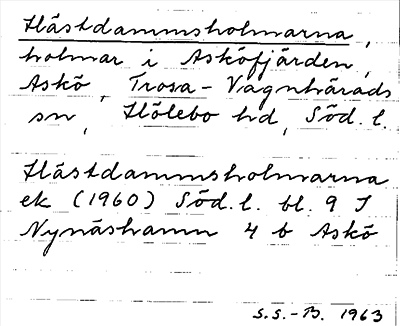 Hästdammsholmarna,
holmar i Asköfjärden,
Askö, Trosa-Vagnhärads
sn, Hölebo hd, Söd. l.
Hästdammsholmarna
ek (1960) Söd. l. bl. 9 I
Nynäshamn 4 b Askö
S.S.-B. 1963